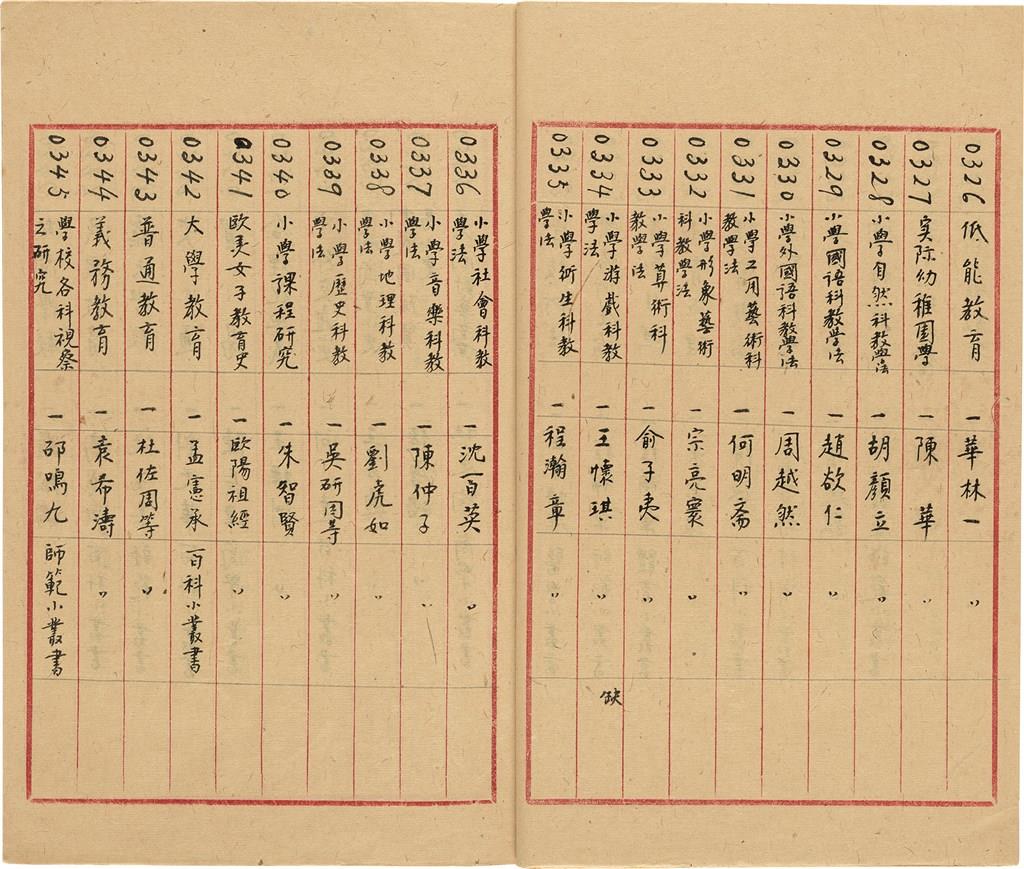 0326 低能教育 一 華林一 〃
0327 実际幼稚園學 一 陳華 〃
0328 小學自然科教學法 一 胡顏立 〃
0329 小學國語科教學法 一 趙欲仁 〃
0330 小學外國語科教學法 一 周越然 〃
0331 小學工用藝術科教學法 一 何明斋 〃
0332 小學形象藝術科教學法 一 宗亮寰 〃
0333 小學算術科教學法 一 俞子夷 〃
0334 小學游戲科教學法 一 王懷琪 〃 缺
0335 小學衛生科教學法 一 程瀚章 〃
0336 小學社會科教學法 一 沈百英 〃
0337 小學音樂科教學法 一 陳仲子 〃
0338 小學地理科教學法 一 劉虎如 〃
0339 小學歷史科教學法 一 吳研因等 〃
0340 小學課程研究 一 朱智賢 〃
0341 欧美女子教育史 一 歐陽祖經 〃
0342 大學教育 一 孟憲承 百科小叢書
0343 普通教育 一 杜佐周等 〃
0344 義務教育 一 袁希濤 〃
0345 學校各科視察之研究 一 邵鳴九 師範小叢書